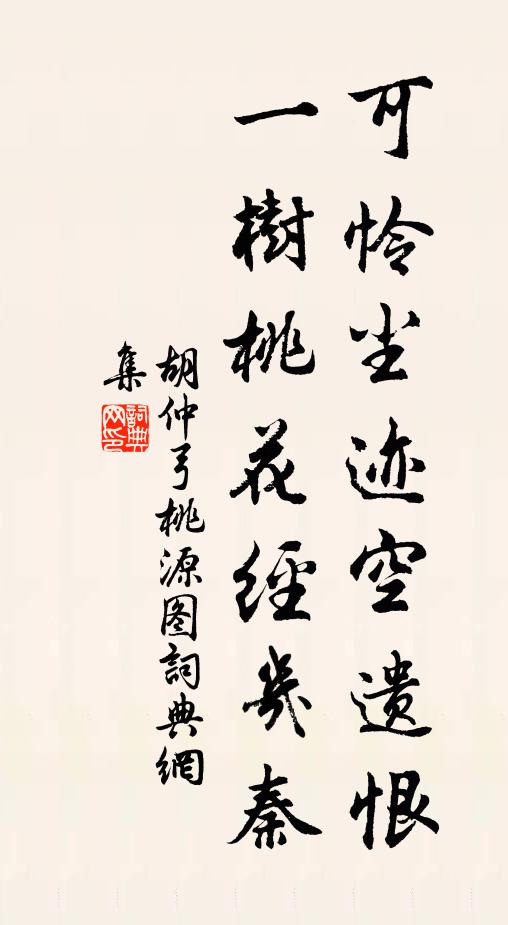 可怜尘迹空遗恨
一樹桃花經幾秦
胡仲弓桃源图詞典網
集
詞典
网印